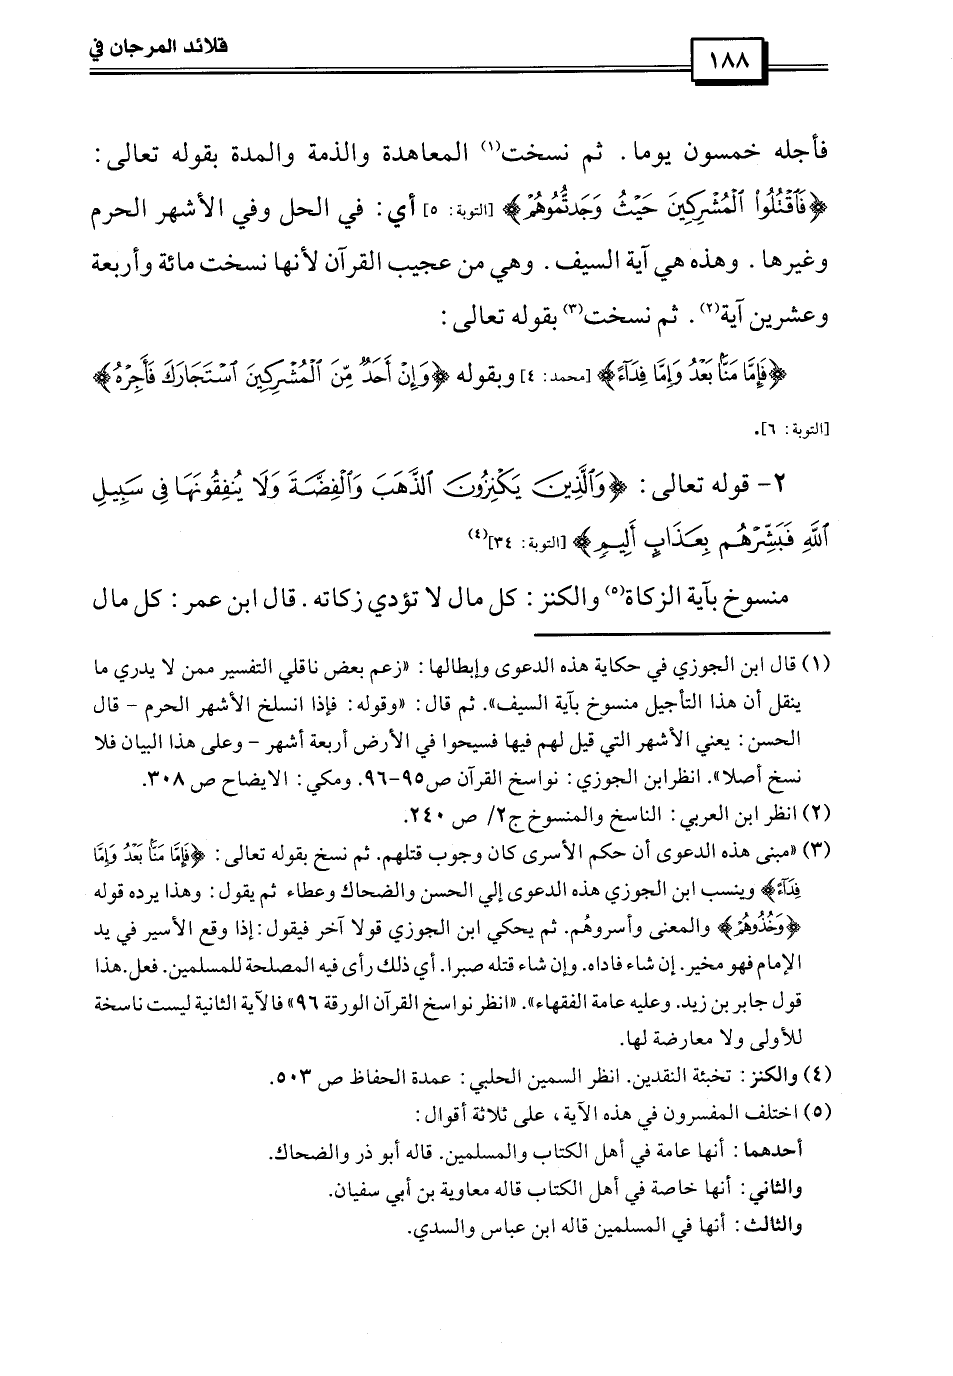 قلائد المرجان في
١٨٨
فأجله خمسون يوما. ثم نسخت(١) المعاهدة والذمة والمدة بقوله تعالى:
﴿فَٱقْتُلُوا۟ ٱلْمُشْرِكِينَ حَيْثُ وَجَدتُّمُوهُمْ﴾ [التوبة: ٥] أي: في الحل وفي الأشهر الحرم
وغيرها. وهذه هي آية السيف. وهي من عجيب القرآن لأنها نسخت مائة وأربعة
وعشرين آية(٢). ثم نسخت(٣) بقوله تعالى:
﴿فَإِمَّا مَنًّۢا بَعْدُ وَإِمَّا فِدَآءً﴾ [محمد: ٤] وبقوله ﴿وَإِنْ أَحَدٌ مِّنَ ٱلْمُشْرِكِينَ ٱسْتَجَارَكَ فَأَجِرْهُ﴾
[التوبة: ٦].
٢- قوله تعالى: ﴿وَٱلَّذِينَ يَكْنِزُونَ ٱلذَّهَبَ وَٱلْفِضَّةَ وَلَا يُنفِقُونَهَا فِى سَبِيلِ
ٱللَّهِ فَبَشِّرْهُم بِعَذَابٍ أَلِيمٍ﴾ [التوبة: ٣٤](٤)
منسوخ بآية الزكاة(٥) والكنز: كل مال لا تؤدي زكاته. قال ابن عمر: كل مال
(١) قال ابن الجوزي في حكاية هذه الدعوى وإبطالها: «زعم بعض ناقلي التفسير ممن لا يدري ما
ينقل أن هذا التأجيل منسوخ بآية السيف». ثم قال: «وقوله: فإذا انسلخ الأشهر الحرم - قال
الحسن: يعني الأشهر التي قيل لهم فيها فسيحوا في الأرض أربعة أشهر - وعلى هذا البيان فلا
نسخ أصلا». انظرابن الجوزي: نواسخ القرآن ص٩٥-٩٦. ومكي: الايضاح ص ٣٠٨.
(٢) انظر ابن العربي: الناسخ والمنسوخ ج٢/ ص ٢٤٠.
(٣) «مبنى هذه الدعوى أن حكم الأسرى كان وجوب قتلهم. ثم نسخ بقوله تعالى: ﴿فَإِمَّا مَنًّۢا بَعْدُ وَإِمَّا
فِدَآءً﴾ وينسب ابن الجوزي هذه الدعوى إلي الحسن والضحاك وعطاء ثم يقول: وهذا يرده قوله
﴿وَخُذُوهُمْ﴾ والمعنى وأسروهُم. ثم يحكي ابن الجوزي قولا آخر فيقول: إذا وقع الأسير في يد
الإمام فهو مخير. إن شاء فاداه. وإن شاء قتله صبرا. أي ذلك رأى فيه المصلحة للمسلمين. فعل.هذا
قول جابر بن زيد. وعليه عامة الفقهاء». «انظر نواسخ القرآن الورقة ٩٦» فالآية الثانية ليست ناسخة
للأولى ولا معارضة لها.
(٤) والكنز: تخبئة النقدين. انظر السمين الحلبي: عمدة الحفاظ ص ٥٠٣.
(٥) اختلف المفسرون في هذه الآية، على ثلاثة أقوال:
أحدهما: أنها عامة في أهل الكتاب والمسلمين. قاله أبو ذر والضحاك.
والثاني: أنها خاصة في أهل الكتاب قاله معاوية بن أبي سفيان.
والثالث: أنها في المسلمين قاله ابن عباس والسدي.